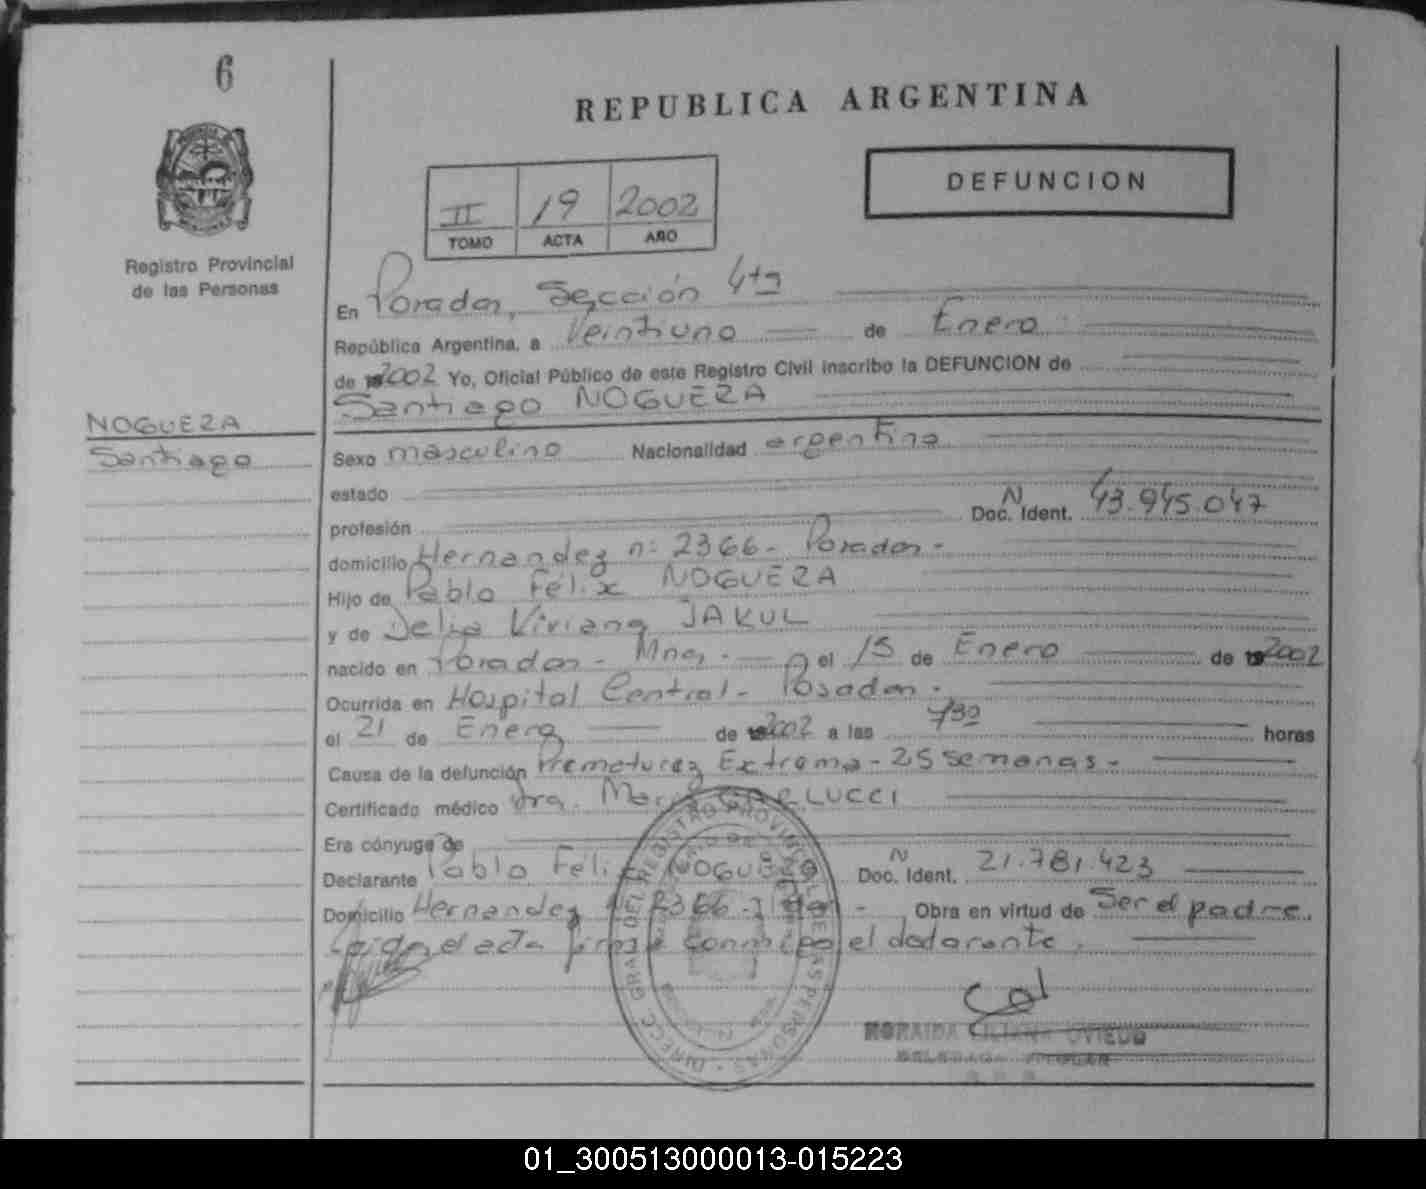 6
REPUBLICA ARGENTINA
DEFUNCION
II 19 2002
TOMO ACTA AÑO
Registro Provincial
de las Personas
En Posadas, Sección 4ta
República Argentina, a Veintiuno de Enero
de 2002 Yo, Oficial Público de este Registro Civil inscribo la DEFUNCION de
Santiago NOGUEZA
NOGUEZA
Santiago
Sexo masculino Nacionalidad argentina
estado
profesión Doc. N Ident. 43.945.047
domicilio Hernandez nº 2366 - Posadas -
Hijo de Pablo Félix NOGUEZA
y de Delia Viviana JAKUL
nacido en Posadas - Mnes. - el 15 de Enero de 2002
Ocurrida en Hospital Central - Posadas -
el 21 de Enero de 2002 a las 730 horas
Causa de la defunción Prematurez Extrema - 25 semanas -
Certificado médico Dra. GARLUCCI
Era cónyuge de
Declarante Pablo Félix NOGUEZA Doc. N Ident. 21.781.423
Domicilio Hernandez 2366 - Obra en virtud de Ser el padre.
Leida el acta firma conmigo el declarante.
DIRECC. GRAL DEL REGISTRO PROVINCIAL DE LAS PERSONAS
NORAIDA LILIANA OVIEDO
DELEGADA TITULAR
01_300513000013-015223